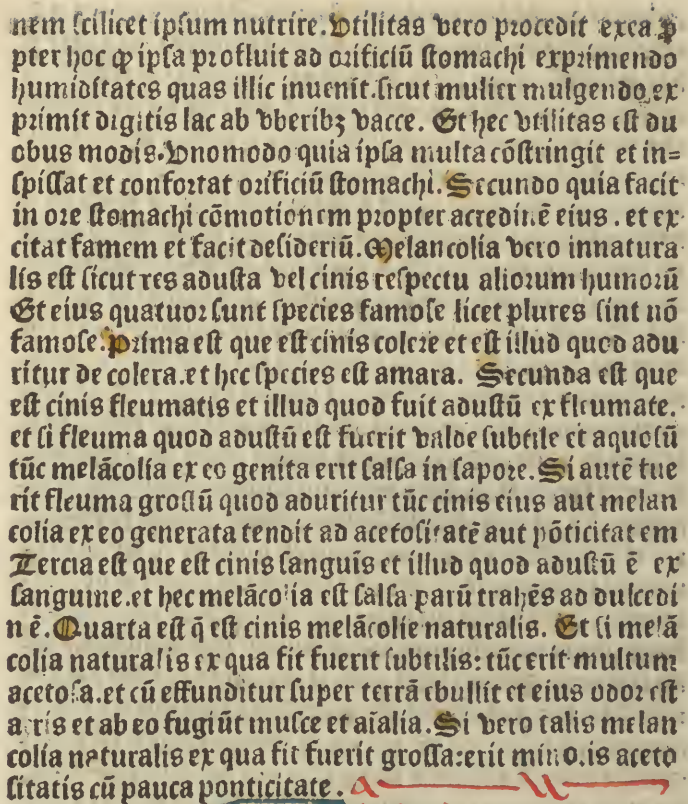 nem scilicet ipsum nutrire. Utilitas vero procedit exea ꝓ
pter hoc ꝙ ipsa profluit ad orificiū stomachi exprimendo
humiditates quas illic inuenit. sicut mulier mulgendo ex
primit digitis lac ab vberibꝫ vacce. Et hec vtilitas est du
obus modis. Unomodo quia ipsa multa cōstringit et in=
spissat et confortat orificiū stomachi. Secundo quia facit
in ore stomachi cōmotionem propter acredinē eius. et ex
citat famem et facit desideriū. Melancolia vero innatura
lis est sicut res adusta vel cinis respectu aliorum humorū
Et eius quatuor sunt species famose licet plures sint nō
famose. Prima est que est cinis colere et est illud quod adu
ritur de colera. et hec species est amara. Secunda est que
est cinis fleumatis et illud quod fuit adustū ex fleumate.
et si fleuma quod adustū est fuerit valde subtile et aquosū
tūc melācolia ex eo genita erit salsa in sapore. Si autē fue
rit fleuma grossū quod aduritur tūc cinis eius aut melan
colia ex eo generata tendit ad acetositatē aut pōticitatem
Tercia est que est cinis sanguis et illud quod adustū ē ex
sanguine. et hec melācolia est salsa parū trahēs ad dulcedi
nē. Quarta est q̄ est cinis melācolie naturalis. Et si melā
colia naturalis ex qua fit fuerit subtilis: tūc erit multum
acetosa. et cū effunditur super terrā ebullit et eius odor est
acris et ab eo fugiūt musce et aīalia. Si vero talis melan
colia naturalis ex qua fit fuerit grossa: erit minoris aceto
sitatis cū pauca ponticitate.